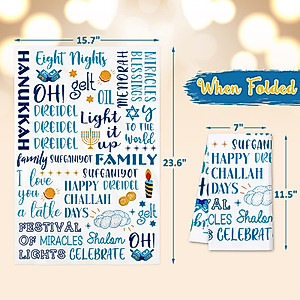 15.7"
HANUKKAH
Eight Nights
gelt
OIL
MIRACLES
BLESSINGS
MEMORIES
OH!
DREIDEL
DREIDEL
DREIDEL
Light
it
up
JOY
TO THE
WORLD
family SUFGANIYOT FAMILY
I love
you
a latke
SUFGANIYOT
HAPPY DREIDEL
CHALLAH
DAYS
gelt
FESTIVAL
OF MIRACLES Shalom
LIGHTS CELEBRATE
OH!
23.6"
When Folded
7"
SUFGANIYOT
HAPPY DREIDEL
CHALLAH
DAYS
AL
MIRACLES Shalom
CELEBRATE
11.5"